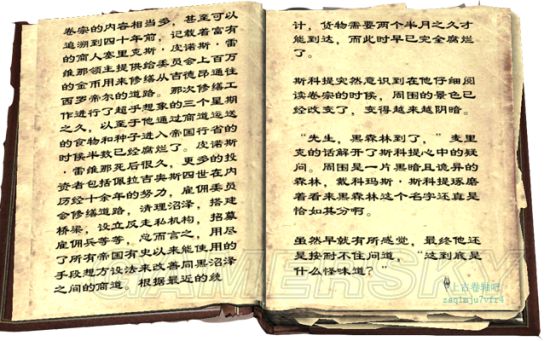 卷宗的内容相当多，甚至可以
追溯到四十年前，记载着富有
的商人塞里克斯·皮诺斯·雷
维那领主提供给委员会上百万
的金币用来修缮从吉德昂通往
西罗帝尔的道路。那次修缮工
作进行了超乎想象的三个星期
之久，以至于他通过商道运送
的食物和种子进入帝国行省的
时候半数已经腐烂了。皮诺斯
·雷维那死后很久，更多的投
资者包括佩拉吉奥斯四世在内
历经十余年的努力，雇佣委员
会修缮道路，清理沼泽，搭建
桥梁，设立反走私机构，招募
雇佣兵等等，总而言之，用尽
了所有帝国有史以来能使用的
手段想方设法来改善同黑沼泽
之间的商道。根据最近的统
计，货物需要两个半月之久才
能到达，而此时早已完全腐烂
了。
斯科提突然意识到在他仔细阅
读卷宗的时候，周围的景色已
经改变了，变得越来越阴暗。
“先生，黑森林到了，”麦里
克的话解开了斯科提心中的疑
问。周围是一片黑暗且诡异的
森林，戴科玛斯·斯科提琢磨
着看来黑森林这个名字还真是
恰如其分啊。
虽然早就有所感觉，最终他还
是按耐不住问道，“这到底是
什么怪味道？”
GAMERSKY
上古卷轴吧
zaq1mju7vfr4